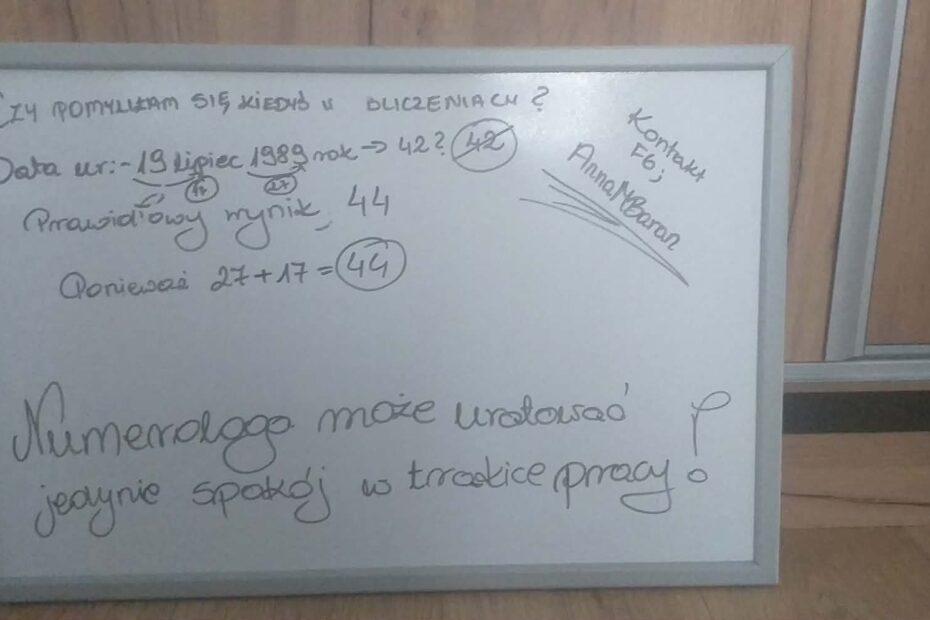 CZY POMYLIŁAM SIĘ KIEDYŚ W OLICZENIACH ?
Data ur:- 19 lipiec 1989 rok → 42? 42
17 27
Prawidłowy wynik 44
Ponieważ 27+17=44
Kontakt
FB;
AnnaMBaran
Numerologa może uratować
jedynie spokój w trakcie pracy!